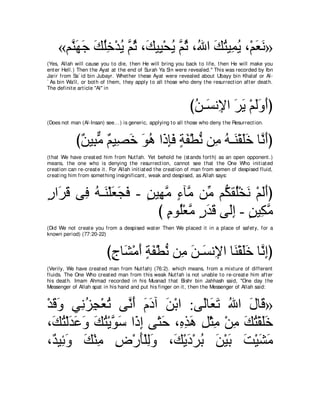 «نَعَمْ، يُمِيتُكَ اللهُ، ثُمَّ يُحْيِيكَ، ثُمَّ يُدْخِلُكَ جَهَنَّم»
(Yes, Allah will cause you to die, then He will bring you back to life, then He will make you
enter Hell.) Then the Ayat at the end of Surah Ya Sin were revealed." This was recorded by Ibn
Jarir from Sa`id bin Jubayr. Whether these Ayat were revealed about Ubayy bin Khalaf or Al-
`As bin Wa'il, or both of them, they apply to all those who deny the resurrection after death.
The definite article "Al" in
(أَوَلَمْ يَرَ الإِنسَـنُ)
(Does not man (Al-Insan) see...) is generic, applying to all those who deny the Resurrection.
(أَنَّا خَلَقْنَـهُ مِن نُّطْفَةٍ فَإِذَا هُوَ خَصِيمٌ مُّبِينٌ)
(that We have created him from Nutfah. Yet behold he (stands forth) as an open opponent.)
means, the one who is denying the resurrection, cannot see that the One Who initiated
creation can re-create it. For Allah initiated the creation of man from semen of despised fluid,
creating him from something insignificant, weak and despised, as Allah says:
(أَلَمْ نَخْلُقكُّم مِّن مَّآءٍ مَّهِينٍ - فَجَعَلْنَـهُ فِى قَرَارٍ
مَّكِينٍ - إِلَى قَدَرٍ مَّعْلُومٍ )
(Did We not create you from a despised water Then We placed it in a place of safety, for a
known period) (77:20-22)
(إِنَّا خَلَقْنَا الإِنسَـنَ مِن نُّطْفَةٍ أَمْشَاجٍ)
(Verily, We have created man from Nutfah) (76:2). which means, from a mixture of different
fluids. The One Who created man from this weak Nutfah is not unable to re-create him after
his death. Imam Ahmad recorded in his Musnad that Bishr bin Jahhash said, "One day the
Messenger of Allah spat in his hand and put his finger on it, then the Messenger of Allah said:
«قَالَ اللهُ تَعَالَى: ابْنَ آدَمَ أَنَّى تُعْجِزُنِي وَقَدْ
خَلَقْتُكَ مِنْ مِثْلِ هَذِهِ، حَتَّى إِذَا سَوَّيْتُكَ وَعَدَلْتُكَ،
مَشَيْتَ بَيْنَ بُرْدَيْكَ، وَلِلْأَرْضِ مِنْكَ وَئِيدٌ،